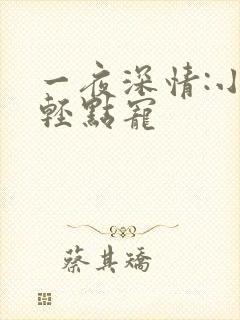 一夜深情:小
輕點寵
蔡其矯